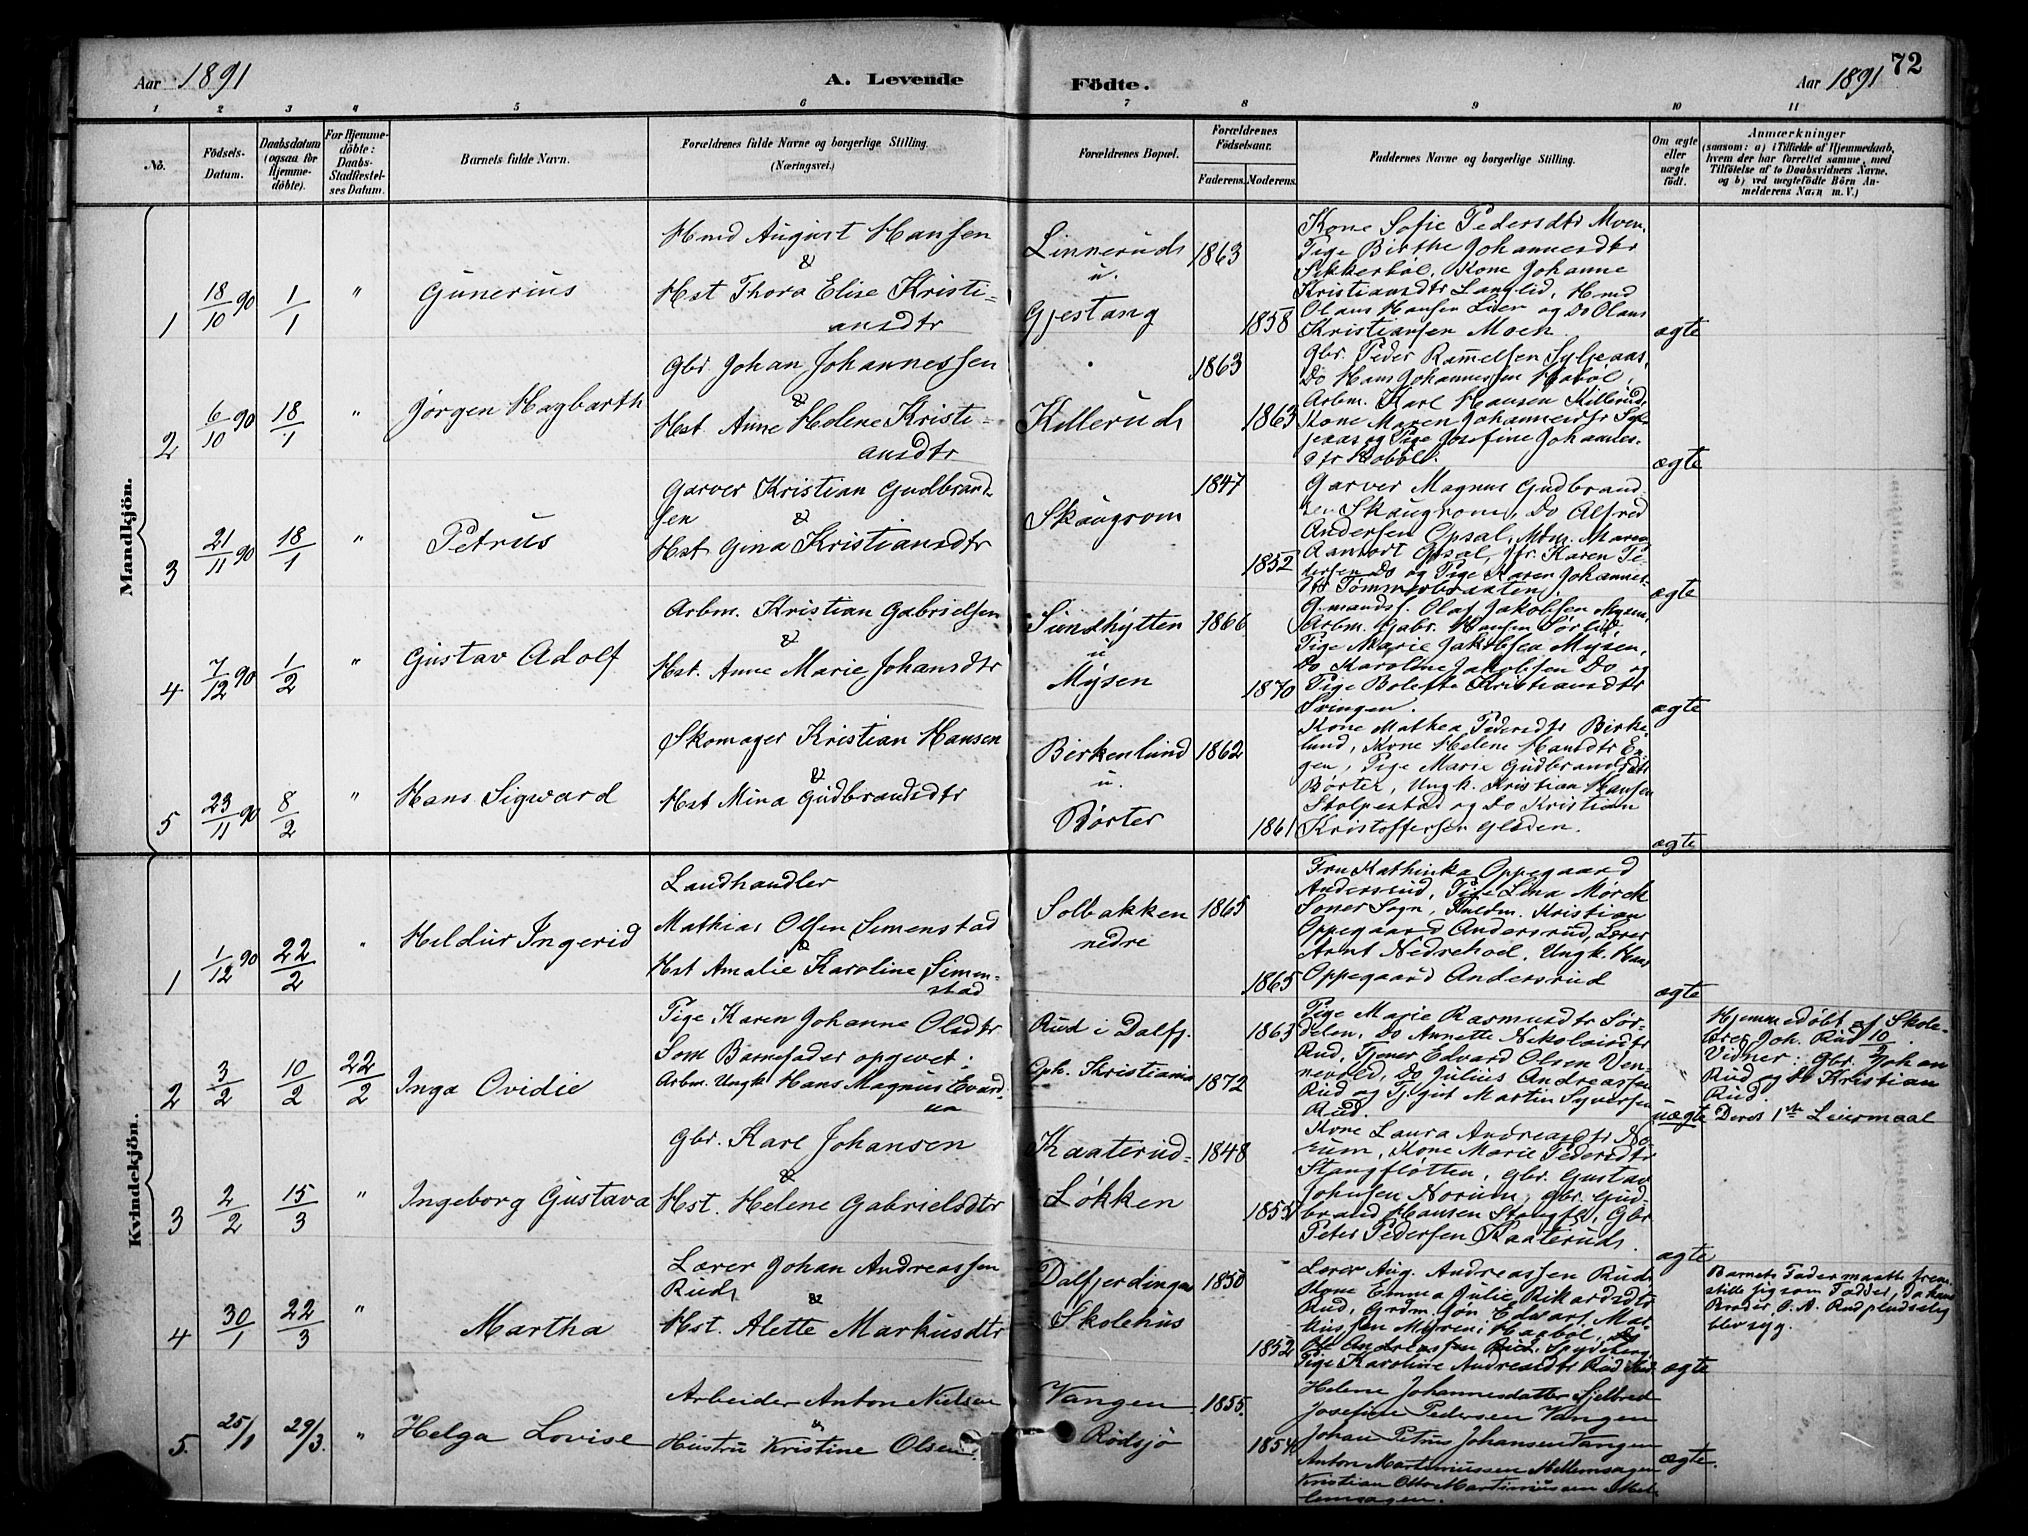 Aar 1891
A. Levende
Födte.
Aar 1891
72
1 2 3 4 5 6 7 8 9 10 11
No.
Födsels-Datum.
Daabsdatum (ogsaa for Hjemmedöbte).
For Hjemmedöbte: Daabs-Stadfæstelses Datum.
Barnets fulde Navn.
Forældrenes fulde Navne og borgerlige Stilling. (Næringsvei.)
Forældrenes Bopæl.
Forældrenes Födselsaar.
Faderens. Moderens.
Faddernes Navne og borgerlige Stilling.
Om ægte eller uægte födt.
Anmærkninger
(saasom: a) i Tilfælde af Hjemmedaab, hvem der har forrettet samme, med Tilföielse af to Daabsvidners Navne, og b) ved uægtefödte Börn Anmelderens Navn m. V.)
Mandkjön.
1 18/10 90 1/1 " Gunerius
Hmd August Hansen
&
Hst Thora Elise Kristi=
ansdtr
Linnerud
u.
Gjestang
1863
1858
Kone Sofie Pedersdtr Moen,
Tige Birthe Johannesdtr
Sikkerbøl, Kone Johanne
Kristiansdtr Langlid, Hmd
Olaus Hansen Lier og Do Olaus
Kristiansen Moen
ægte
2 6/10 90 18/1 " Jørgen Hagbarth
Gbr. Johan Johannessen
&
Hst. Anne Helene Kristi-
ansdtr
Killerud
1863
1863
Gbr. Peder
Do Hans Johannessen Habøl,
Arbm. Karl Hansen Killerud,
Kone Maren Johannesdtr
og Tige Josefine Johannes-
dtr
ægte
3 21/11 90 18/1 " Petrus
Garver Kristian Gudbrand
sen &
Hst. Gina Kristiansdtr
Skaugrom
1847
1852
Garver Magnus Gudbrand
sen Skaugrom, Do Alfred
Andersen Opsal, Maren
Opsal, Karen Pe
dersen Do og Tige Karen Johannes-
dtr Tømmerbraaten
ægte
4 7/12 90 1/2 " Gustav Adolf
Arbm. Kristian Gabrielsen
&
Hst. Anne Marie Johansdtr
Sundhytten
u
Mysen
1866
1870
Olaf Jakobsen Mysen,
Arbm. Gabr. Hansen Sørlid
Tige Marie Jakobsen Mysen,
Do Karoline Jakobsen Do og
Tige Bolette Kristiansdtr
Svingen.
ægte
5 23/11 90 8/2 " Hans Sigward
Skomager Kristian Hansen
&
Hst Mina Gudbrandsdtr
Birkenlund
u.
Børter
1862
1861
Kone Mathea Pedersdtr Birke
lund, Kone Helene Hansdtr En
gen, Tige Marie Gudbrandsdtr
Børter, Ungk. Kristian Hansen
Stolpestad og Do Kristian
Kristoffersen Gladen.
ægte
Kvindekjön.
1 1/12 90 22/2 " Heldur Ingerid
Landhandler
Mathias Olsen Simenstad
&
Hst Amalie Karoline Simen-
stad
Solbakken
nedre
1865
1865
Fru Kathinka Oppegaard
Andersrud, Tige Lina Mørch
Soner Sogn, Kristian
Oppegaard Andersrud, Lærer
Arnt Nedrehoel, Ungk. Hans
Oppegaard Andersrud
ægte
2 3/2 10/2 22/2 Inga Ovidie
Tige Karen Johanne Olsdtr
Som Barnefader opgivet:
Arbm. Ungk. Hans Magnus Evard
Rud i Dalfj.
Oph. Kristiania
1863
1872
Tige Marie Rasmusdtr Sør-
dalen, Do Annette Nikolaisdtr
Rud, Tjener Edvard Olsen Ven-
nevold, Do Julius Andreassen
Rud og Tj.gut Martin Syversen
Rud.
uægte
Hjemmedøbt af Skole-
lærer Joh. Rud 10/2.
Vidner: Gbr. Johan
Rud og Do Kristian
Rud.
Deres 1ste Leiermaal
3 2/2 15/3 " Ingeborg Gustava
Gbr. Karl Johansen
&
Hst. Helene Gabrielsdtr
Kaaterud-
Løkken
1848
1855
Kone Laura Andreasdtr No-
rum, Kone Marie Pedersdtr
Stangfløtten, Gbr. Gustav
Johnsen Norum, Gbr. Gud-
brand Hansen Stangfl, Gbr
Peter Pedersen Kaaterud.
ægte
4 30/1 22/3 " Martha
Lærer Johan Andreassen
Rud &
Hst. Alette Markusdtr
Dalfjerdingen
Skolehus
1850
1852
Lærer Aug. Andreassen Rud,
Kone Emma Julie Rikardsdtr
Rud, Grdm. Jon Edvart Mar-
kussen Myren i Haabøl,
Ole Andreassen Rud, Spydeberg
Tige Karoline Andreasdtr Rud
ægte
Barnets Fader maatte frem
stille sig som Fadder, da hans
Broder O. A. Rud pludselig
blev syg.
5. 25/1 29/3. " Helga Lovise
Arbeider Anton Nielsen
&
Hustru Kristine Olsen.
Vangen
Rødsjø
1855.
1854
Helene Johannesdatter Sjelbred
Josefine Pedersen Vangen
Johan Petrus Johansen Vangen
Anton Martiniussen Mellemsagen
Kristian Otto Martiniussen Mel-
lemsagen.
ægte.